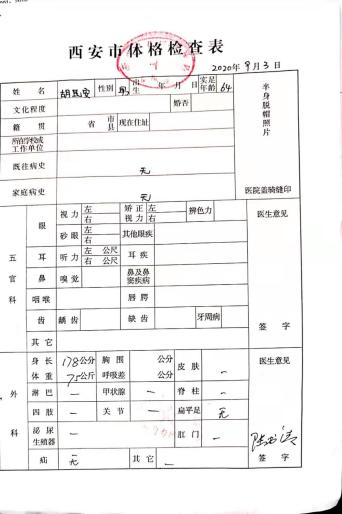 西安市体格检查表
2020年9月3日
姓名 性别 男 出生 年 月 日 实足年龄 64
文化程度 婚否
籍贯 省 市县 现在住址
所在学校或工作单位
既往病史 无
家庭病史 无
半身脱帽照片
医院盖骑缝印
五官科
眼 视力 左 右 矫正视力 左 右 辨色力 医生意见
砂眼 左 右 其他眼疾
耳 听力 左 公尺 右 公尺 耳疾
鼻 嗅觉 鼻及鼻窦疾病
咽喉 唇腭
齿 龋齿 缺齿 牙周病
其它 签字
外科
身长 178公分 胸围 公分 皮肤 - 医生意见
体重 75公斤 呼吸差 公分
淋巴 - 甲状腺 - 脊柱 -
四肢 - 关节 - 扁平足 无
泌尿生殖器 - 肛门 -
疝 无 其它 - 签字